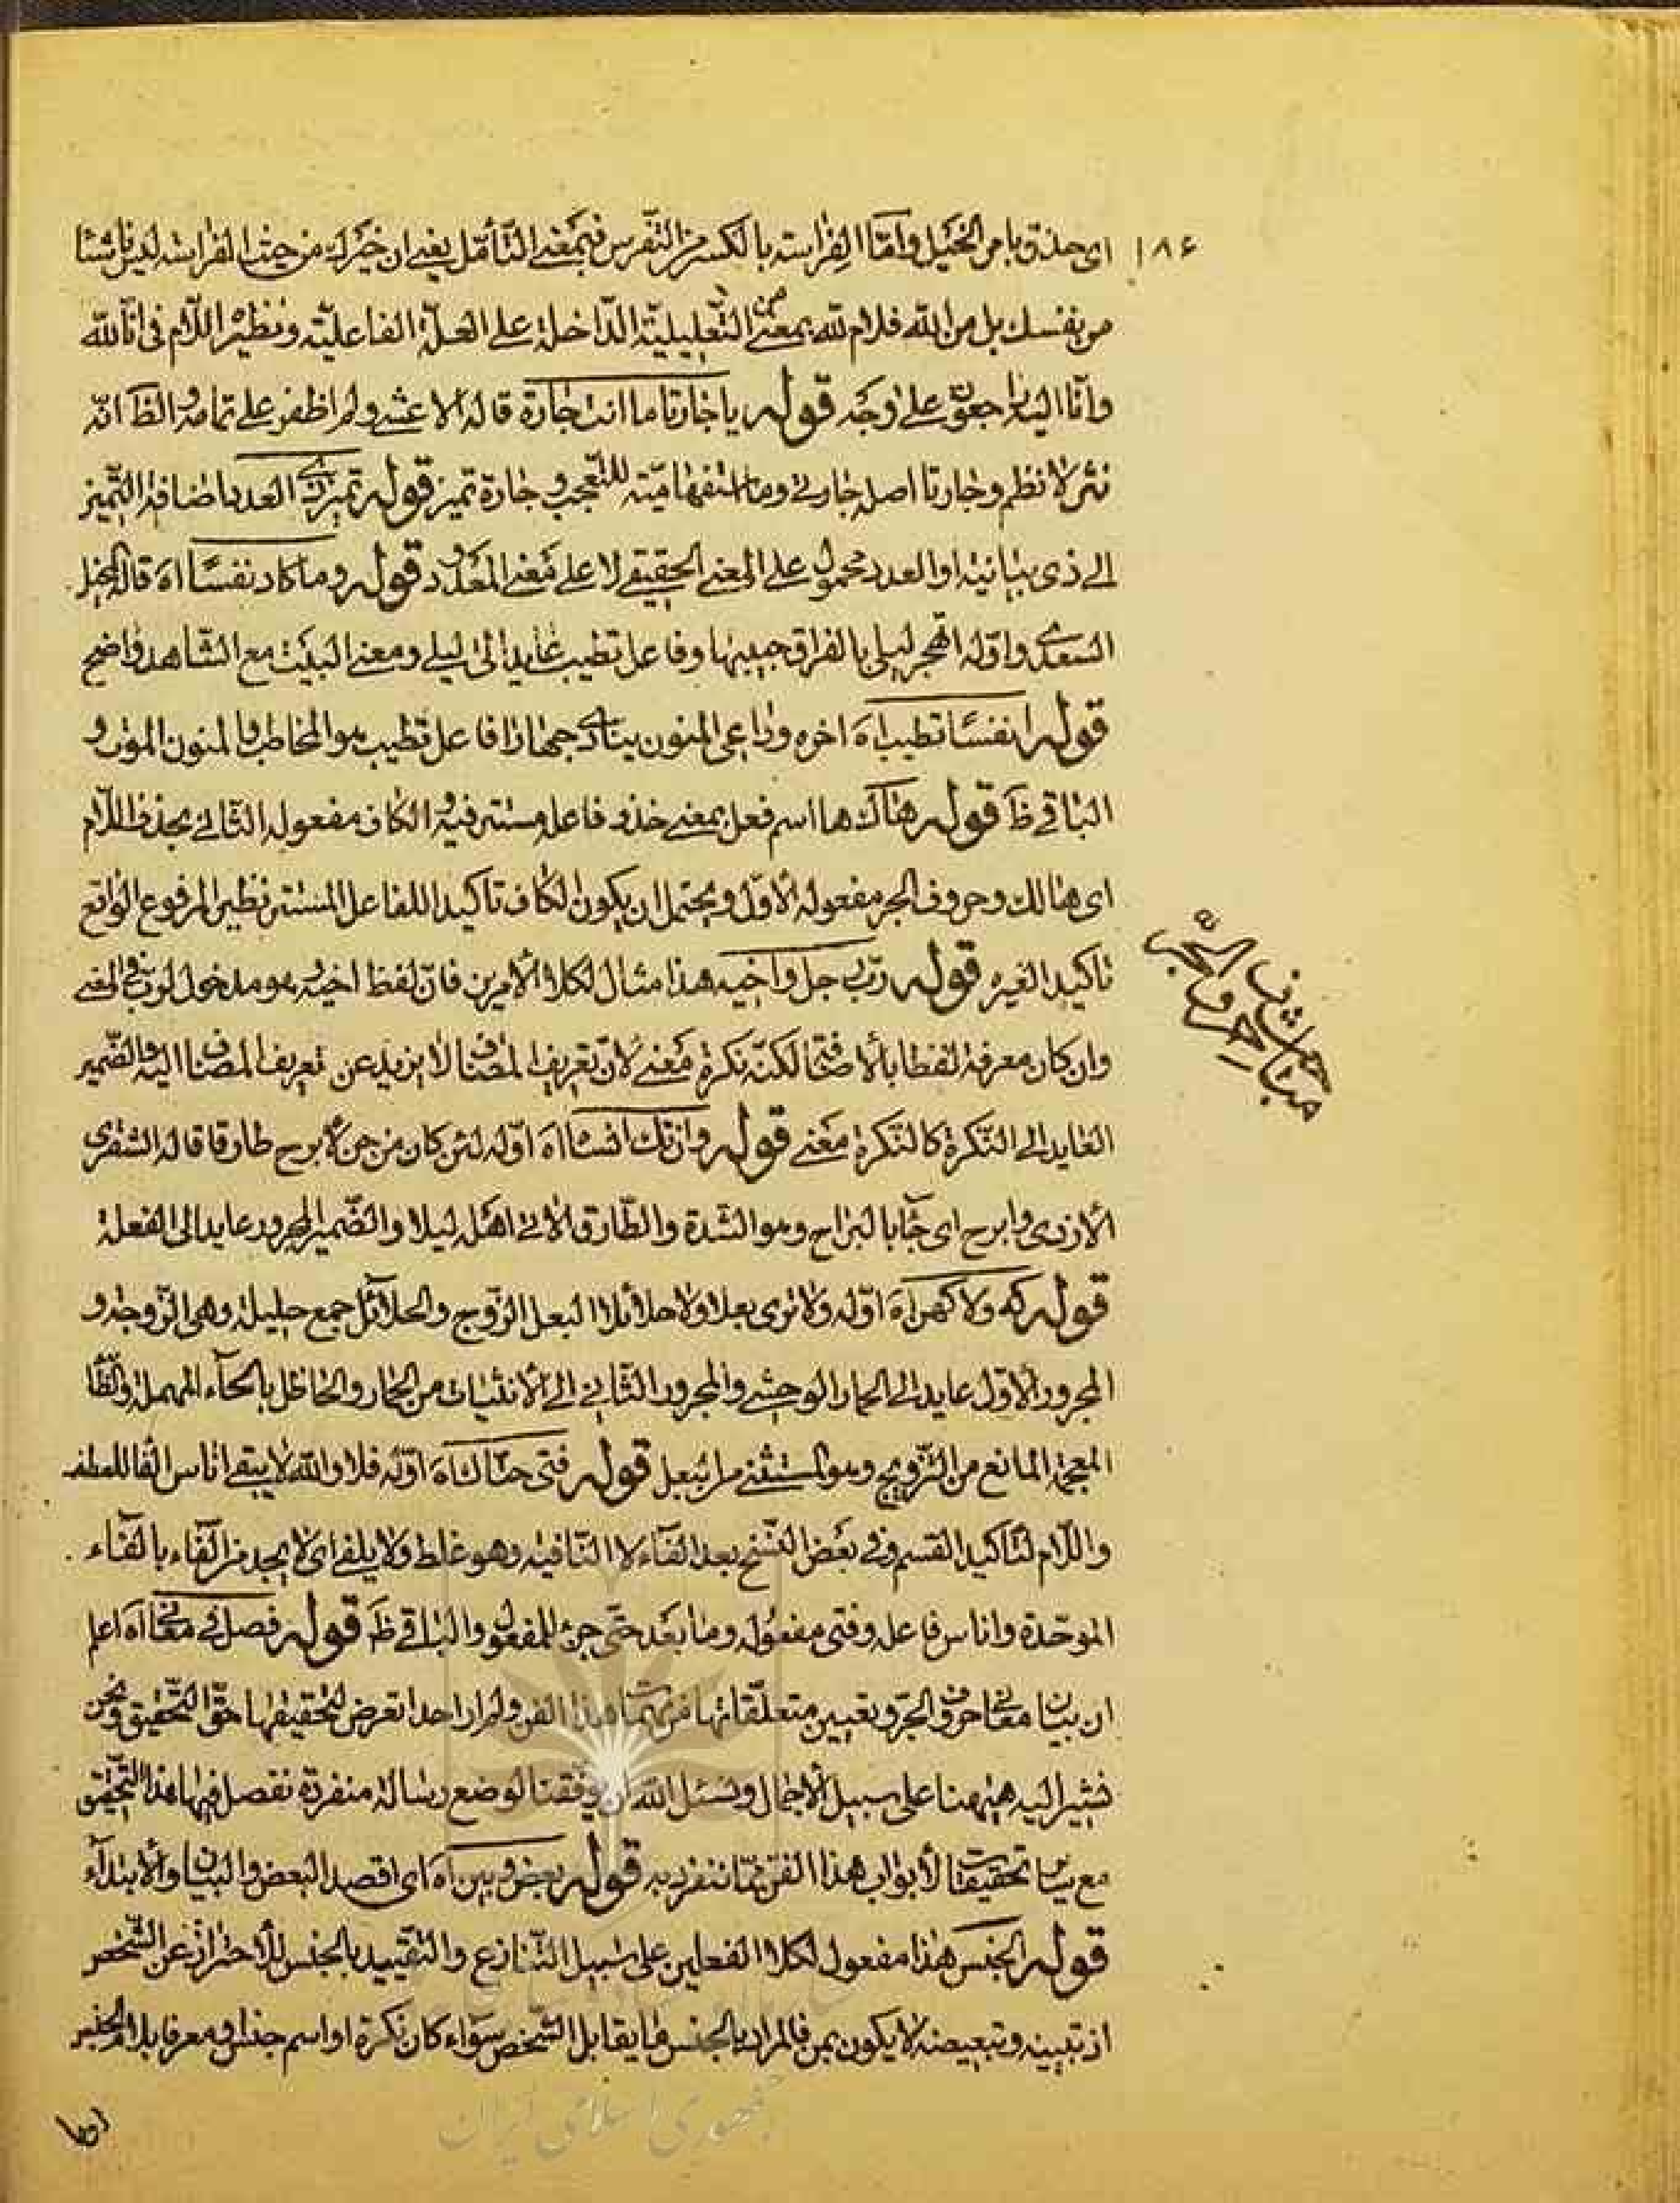 ١٨۶
اى حذق بامر الخيل وامّا الفراسته بالكسر من التّفرس فبمعنى التّأمّل يعنى ان خيرك من حيث الفراسته ليس ناشئا
من نفسك بل من الله فلام لله بمعنى من التّعليليّة الدّاخلة على العلّة الفاعليّة ونظير اللّام فى انّا لله
وانّا اليه راجعون على وجه قوله يا جارتا ما انت جارة قاله الاعشى ولم اظفر على تمامه والظ انّه
نثر لا نظم وجارتا اصله جارتى وما استفهاميّة للتّعجب و جارة تميز قوله تميزى العدد باضافة التّميز
الى ذى بيانيّة او العدد محمول على المعنى الحقيقى لا على معنى المعدود قوله وما كاد نفسًا اه قاله المخبل
السعدى واوّله اتهجر ليلى بالفراق حبيبها وفاعل تطيب عايد الى ليلى ومعنى البيت مع الشّاهد واضح
قوله انفسًا تطيب اه اخره وداعى المنون ينادى جهارا فاعل تطيب هو المخاطب والمنون الموت و
الباقى ظ قوله هاك ها اسم فعل بمعنى خذ وفاعله مستتر فيه والكاف مفعوله الثّانى بحذف اللّام
اى ها لك وحروف الجر مفعوله الاوّل ويحتمل ان يكون الكاف تاكيدا للفاعل المستتر نظير المرفوع الواقع
تاكيد الغيره قوله ربّ رجل واخيه هذا مثال لكلا الأمرين فانّ لفظ اخيه هو مدخول لربّ فى المعنى
وان كان معرفة لفظا بالاضافة لكنّه نكرة معنى لانّ تعريف المضاف لا يزيد عن تعريف المضاف اليه والضّمير
العايد الى النّكرة كالنّكرة معنى قوله وان تك انسا اه اوّله لئن كان من جن لأبرح طارقا قاله الشنفرى
الأزدى وابرح اى جآء بالبراح وهو الشّدة والطّارق الاتى اهله ليلا والضّمير المجرور عايد الى الفعلة
قوله كه ولا كهن اه اوّله ولا ترى بعلا ولا حلائلا البعل الزّوج والحلائل جمع حليلة وهى الزّوجة و
المجرور الأوّل عايد الى الحمار الوحشى والمجرور الثّانى الى الأنثيات من الحمار والحاظل بالحآء المهملة والظّا
المعجمة المانع من التّزويج وهو المستثنى من بعل قوله فتى حتّاك اه اوّله فلا والله لا يبقى اناس الفا للعطف
واللّام لتأكيد القسم وفى بعض النّسخ بعد الفآء لا النّافية وهو غلط ولا يلفى اى لا يجد من الفاء بالفآء
الموحّدة واناس فاعله وفتى مفعوله وما بعد حتّى جرّ للمفعول والباقى ظ قوله فصل فى معانى اه اعلم
ان بيان معانى حروف الجرّ وتعيين متعلّقاتها من مهمّات هذا الفن ولم ار احدا تعرض لتحقيقها حقّ التّحقيق ونحن
نشير اليه هيهنا على سبيل الأجمال ونسئل الله ان يوفّقنا لوضع رسالة منفردة نفصل فيها هذا التّحقيق
مع ساير تحقيقات لأبواب هذا الفن ممّا ننفرد به قوله بعّض وبيّن اه اى اقصد البعض والبيان والأبتدآء
قوله الجنس هذا مفعول لكلا الفعلين على سبيل التّنازع والتّقييد بالجنس للأحتراز عن الشّخص
اذ تبيينه وتبعيضه لا يكون بمن فالمراد بالجنس ما يقابل الشّخص سواء كان نكرة او اسم جنس او معرفا بلام الجنس
مباحث حروف الجر
جمهوری اسلامی ایران